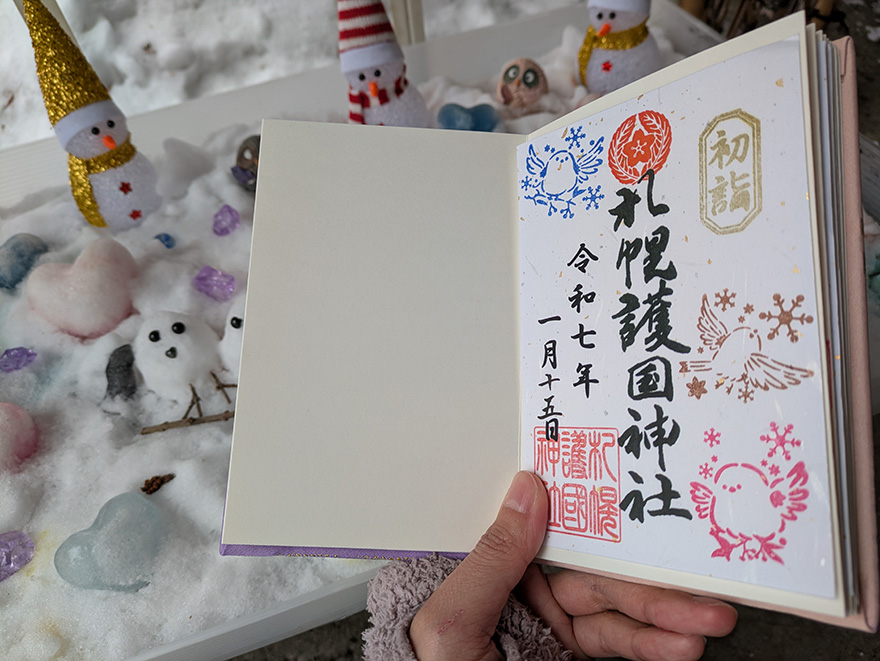 初詣
札幌護国神社
令和七年
一月十五日
札幌
護國
神社